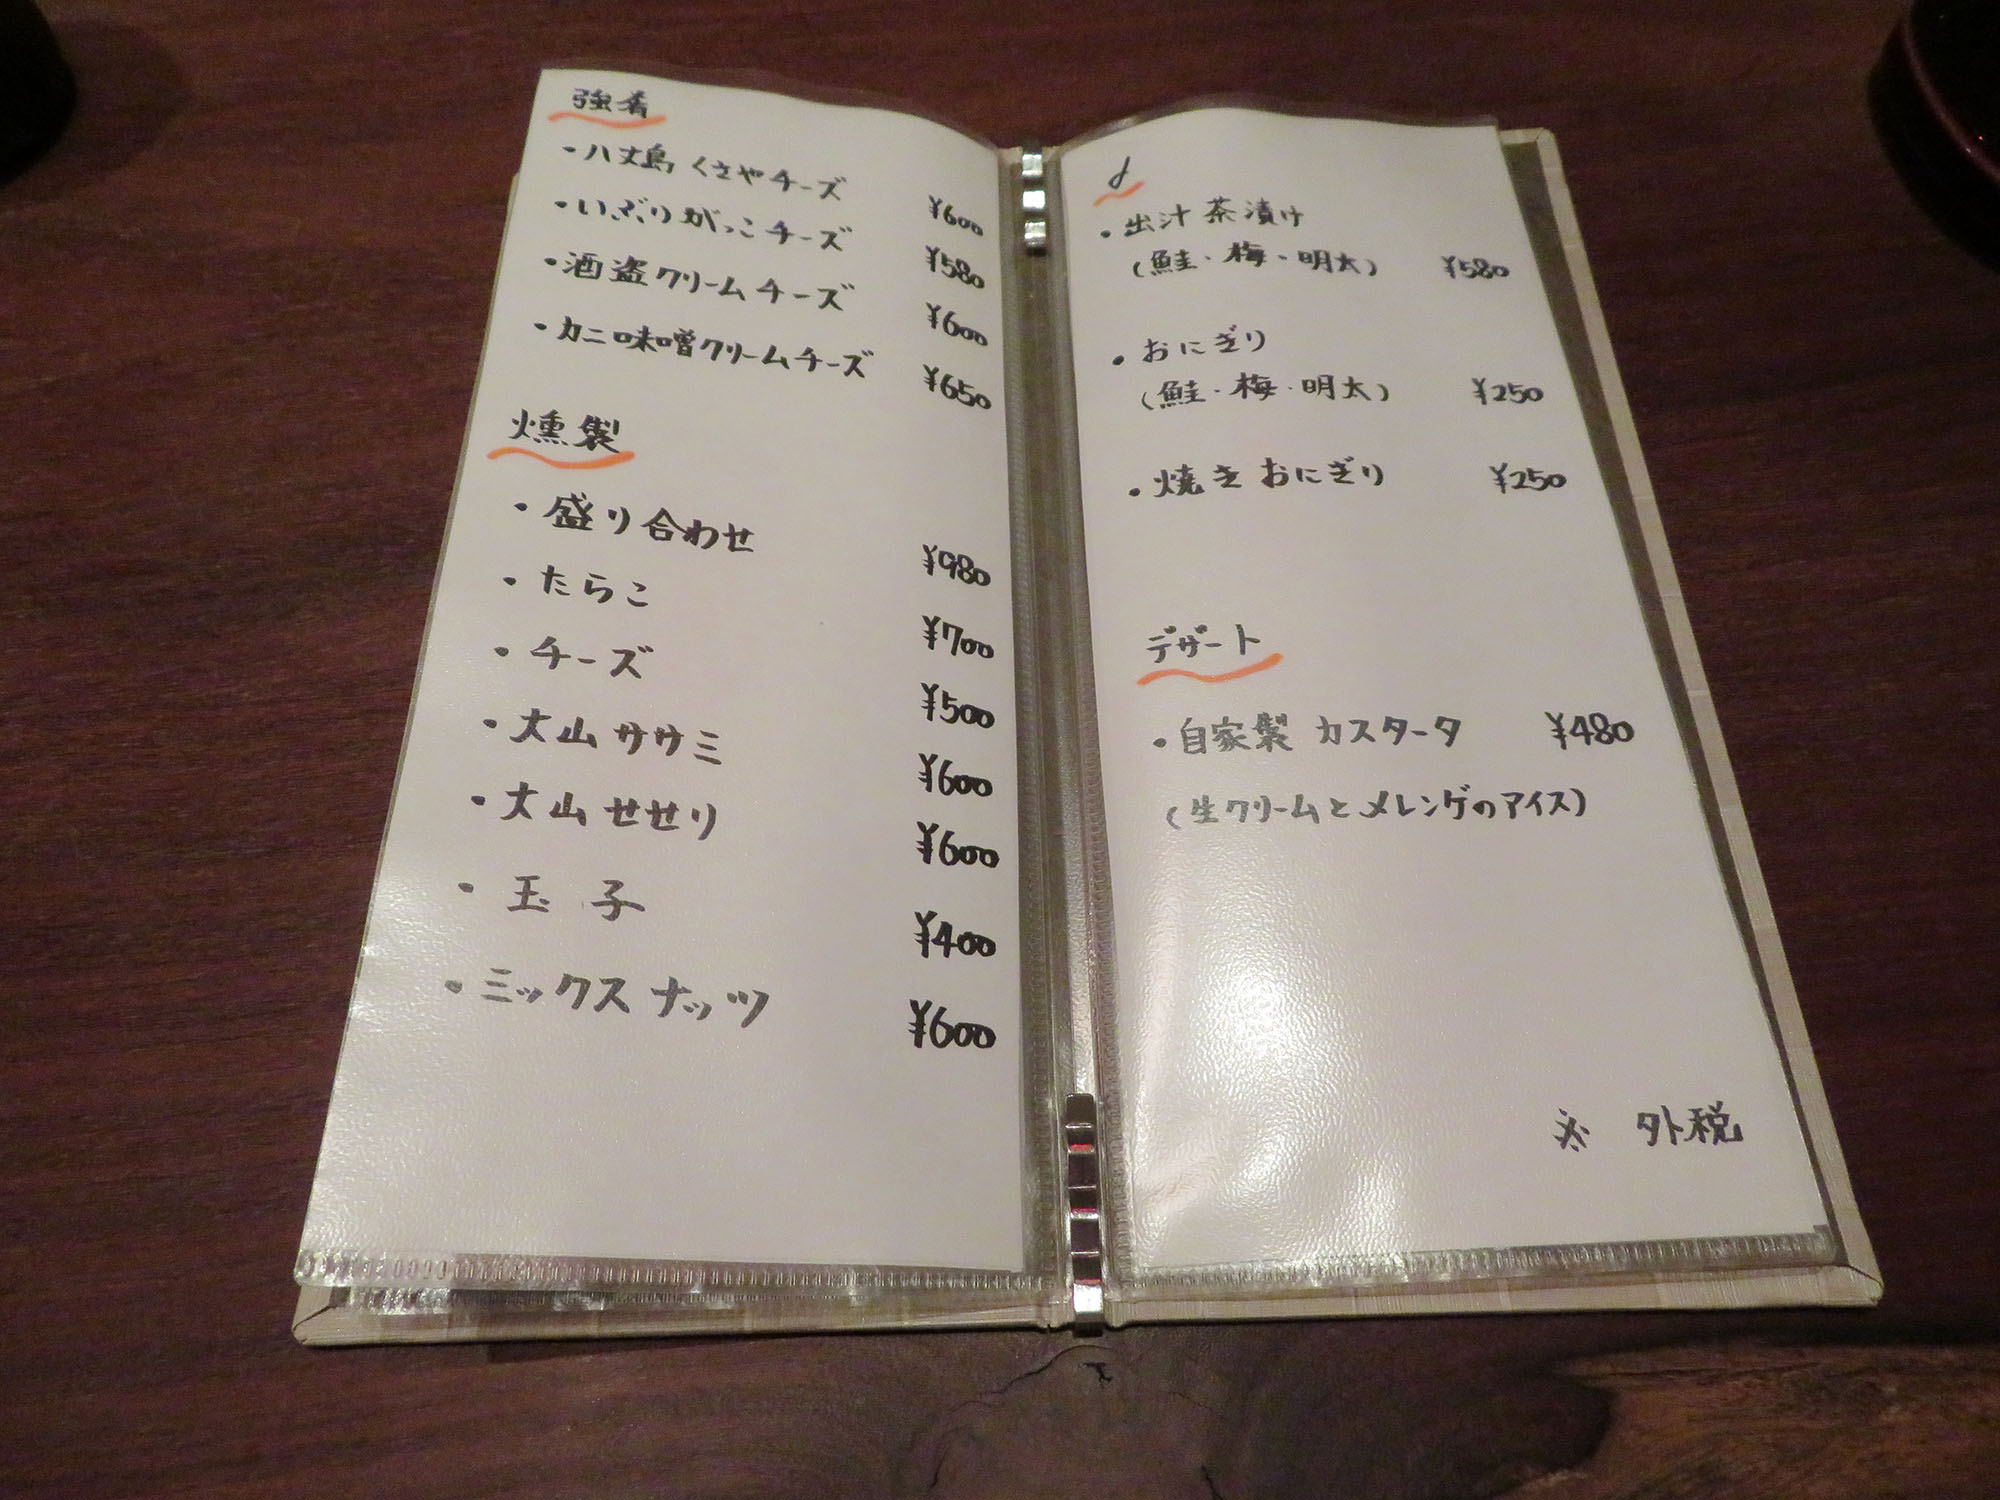 強肴
・八丈島 くさやチーズ ¥600
・いぶりがっこチーズ ¥580
・酒盗クリームチーズ ¥600
・カニ味噌クリームチーズ ¥650
燻製
・盛り合わせ ¥980
・たらこ ¥700
・チーズ ¥500
・大山ササミ ¥600
・大山せせり ¥600
・玉子 ¥400
・ミックスナッツ ¥600
・出汁茶漬け
(鮭・梅・明太) ¥580
・おにぎり
(鮭・梅・明太) ¥250
・焼きおにぎり ¥250
デザート
・自家製 カスタータ ¥480
(生クリームとメレンゲのアイス)
※ 外税